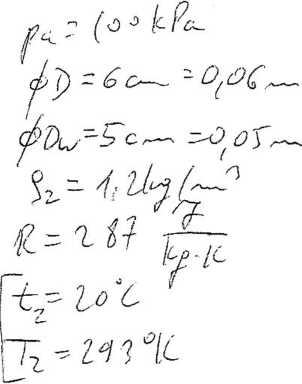 pa = 100 kPa
ϕD = 6 cm = 0,06 m
ϕDw = 5 cm = 0,05 m
ρ2 = 1,2 kg/m³
R = 287 J/kg·K
t2 = 20°C
T2 = 293°K